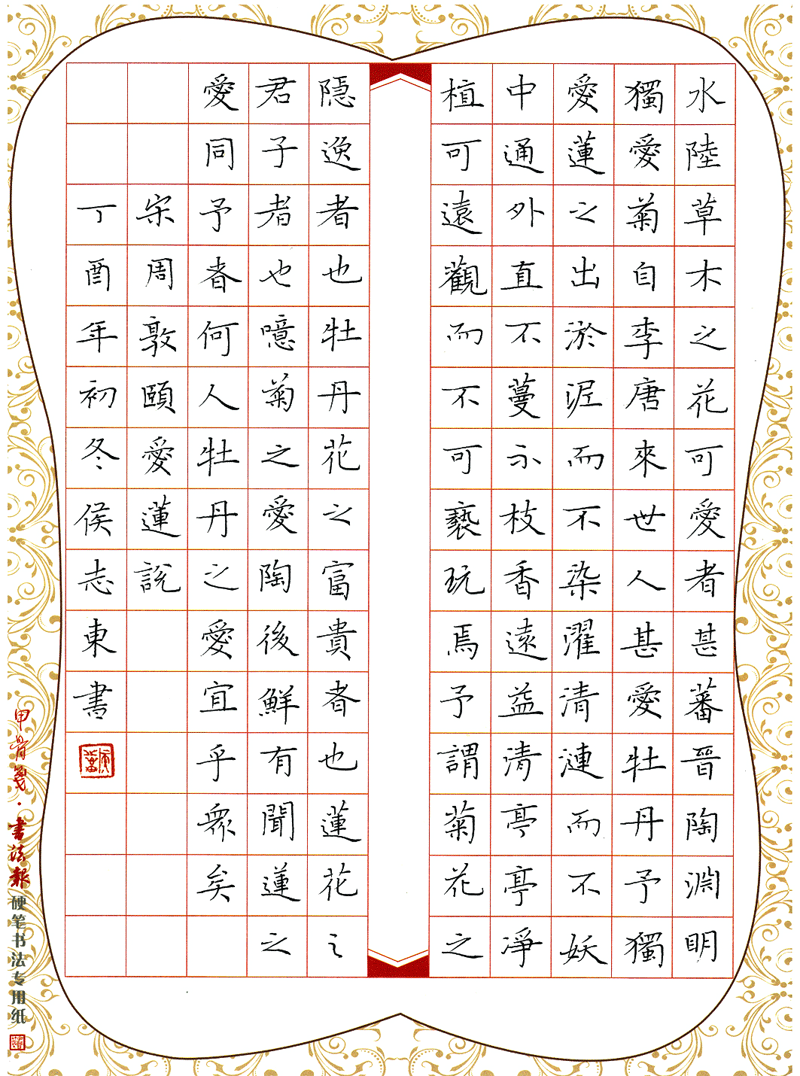 水陸草木之花可愛者甚蕃晉陶淵明
獨愛菊自李唐來世人甚愛牡丹予獨
愛蓮之出淤泥而不染濯清漣而不妖
中通外直不蔓不枝香遠益清亭亭淨
植可遠觀而不可褻玩焉予謂菊花之
隱逸者也牡丹花之富貴者也蓮花之
君子者也噫菊之愛陶後鮮有聞蓮之
愛同予者何人牡丹之愛宜乎眾矣
宋周敦頤愛蓮說
丁酉年初冬侯志東書
甲骨笺·書法報硬笔书法专用纸